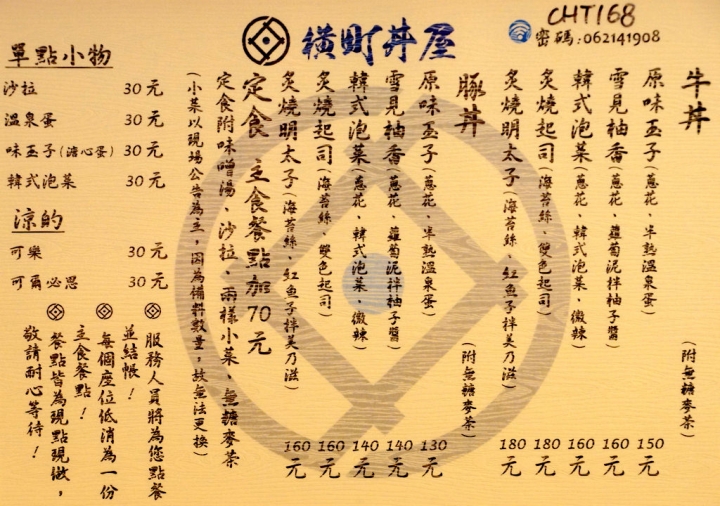 橫町丼屋
CHT168
密碼:062141908
牛丼
(附無糖麥茶)
原味玉子(蔥花、半熟溫泉蛋) 150元
雪見柚香(蔥花、蘿蔔泥拌柚子醬) 160元
韓式泡菜(蔥花、韓式泡菜、微辣) 160元
炙燒起司(海苔絲、雙色起司) 180元
炙燒明太子(海苔絲、紅魚子拌美乃滋) 180元
豚丼
(附無糖麥茶)
原味玉子(蔥花、半熟溫泉蛋) 130元
雪見柚香(蔥花、蘿蔔泥拌柚子醬) 140元
韓式泡菜(蔥花、韓式泡菜、微辣) 140元
炙燒起司(海苔絲、雙色起司) 160元
炙燒明太子(海苔絲、紅魚子拌美乃滋) 160元
定食 主食餐點加70元
定食附味噌湯、沙拉、兩樣小菜、無糖麥茶
(小菜以現場公告為主,因為備料數量,故無法更換)
單點小物
沙拉 30元
溫泉蛋 30元
味玉子(溏心蛋) 30元
韓式泡菜 30元
涼的
可樂 30元
可爾必思 30元
服務人員將為您點餐
並結帳!
每個座位低消為一份
主食餐點!
餐點皆為現點現做,
敬請耐心等待!